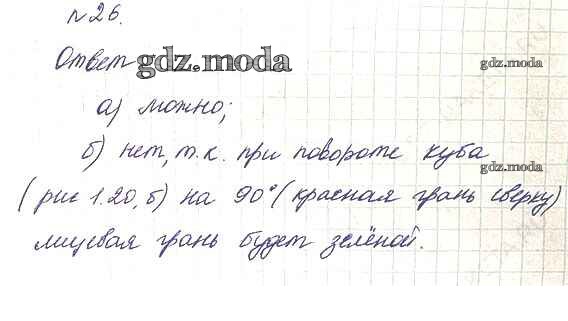 №26.
Ответ gdz.moda
gdz.moda
а) можно;
б) нет, т.к. при повороте куба
gdz.moda
(рис 1.20, б) на 90° (красная грань сверху)
лицевая грань будет зелёной.